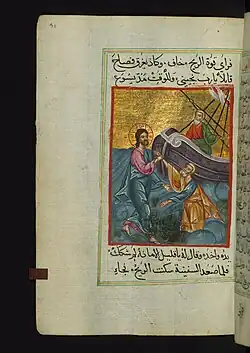 فراى قوة الريح مخاف، وكاد يغرق فصاح
قايلاً يارب نجيني، وللوقت مد يسوع
يده واخده وقال له يا قليل الامانه لم شككت
فلما صعد السفينة سكت الريح، فجاء